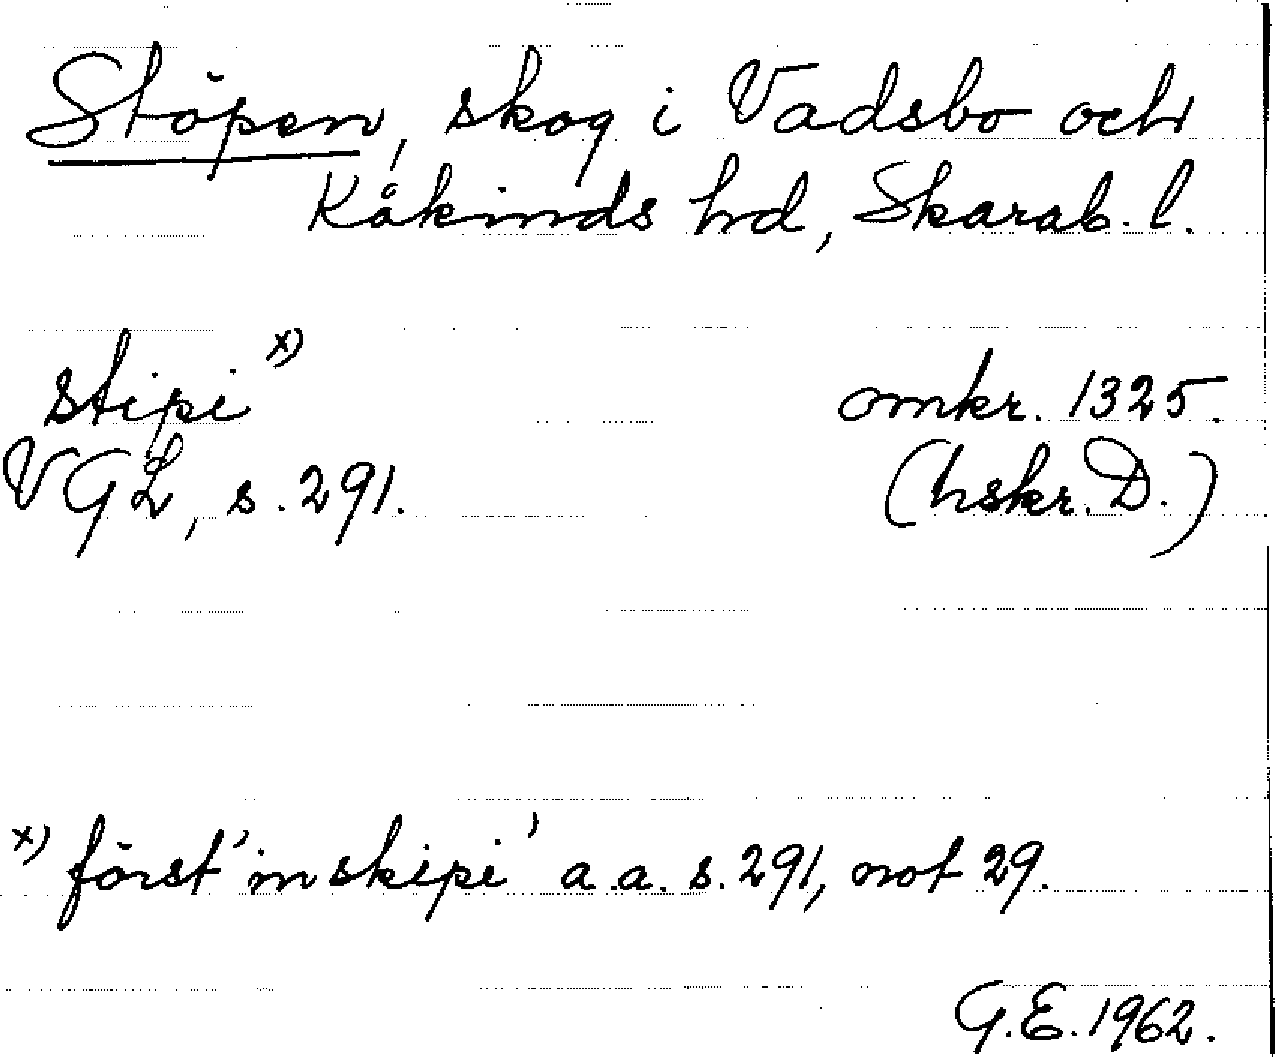 Stöpen, skog i Vadsbo och
Kåkinds hd, Skarab. l.
stipi x) omkr. 1325.
VGL, s. 291. (hskr. D.)
x) först 'inskipi' a.a. s. 291, not 29.
G.E. 1962.